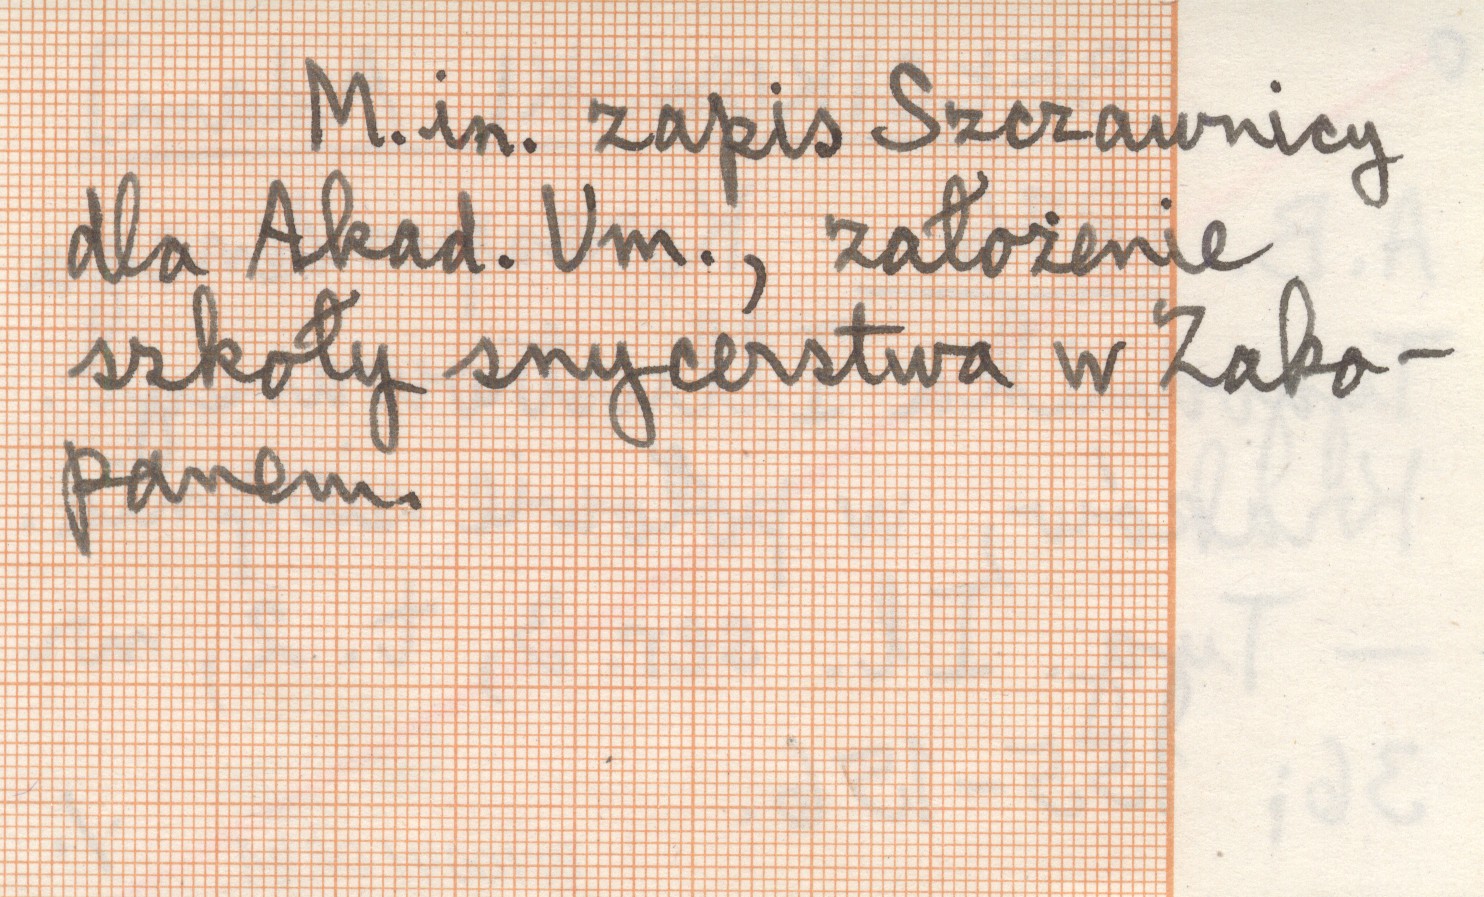 M. in. zapis Szczawnicy
dla Akad. Um., założenie
szkoły snycerstwa w Zako-
panem.